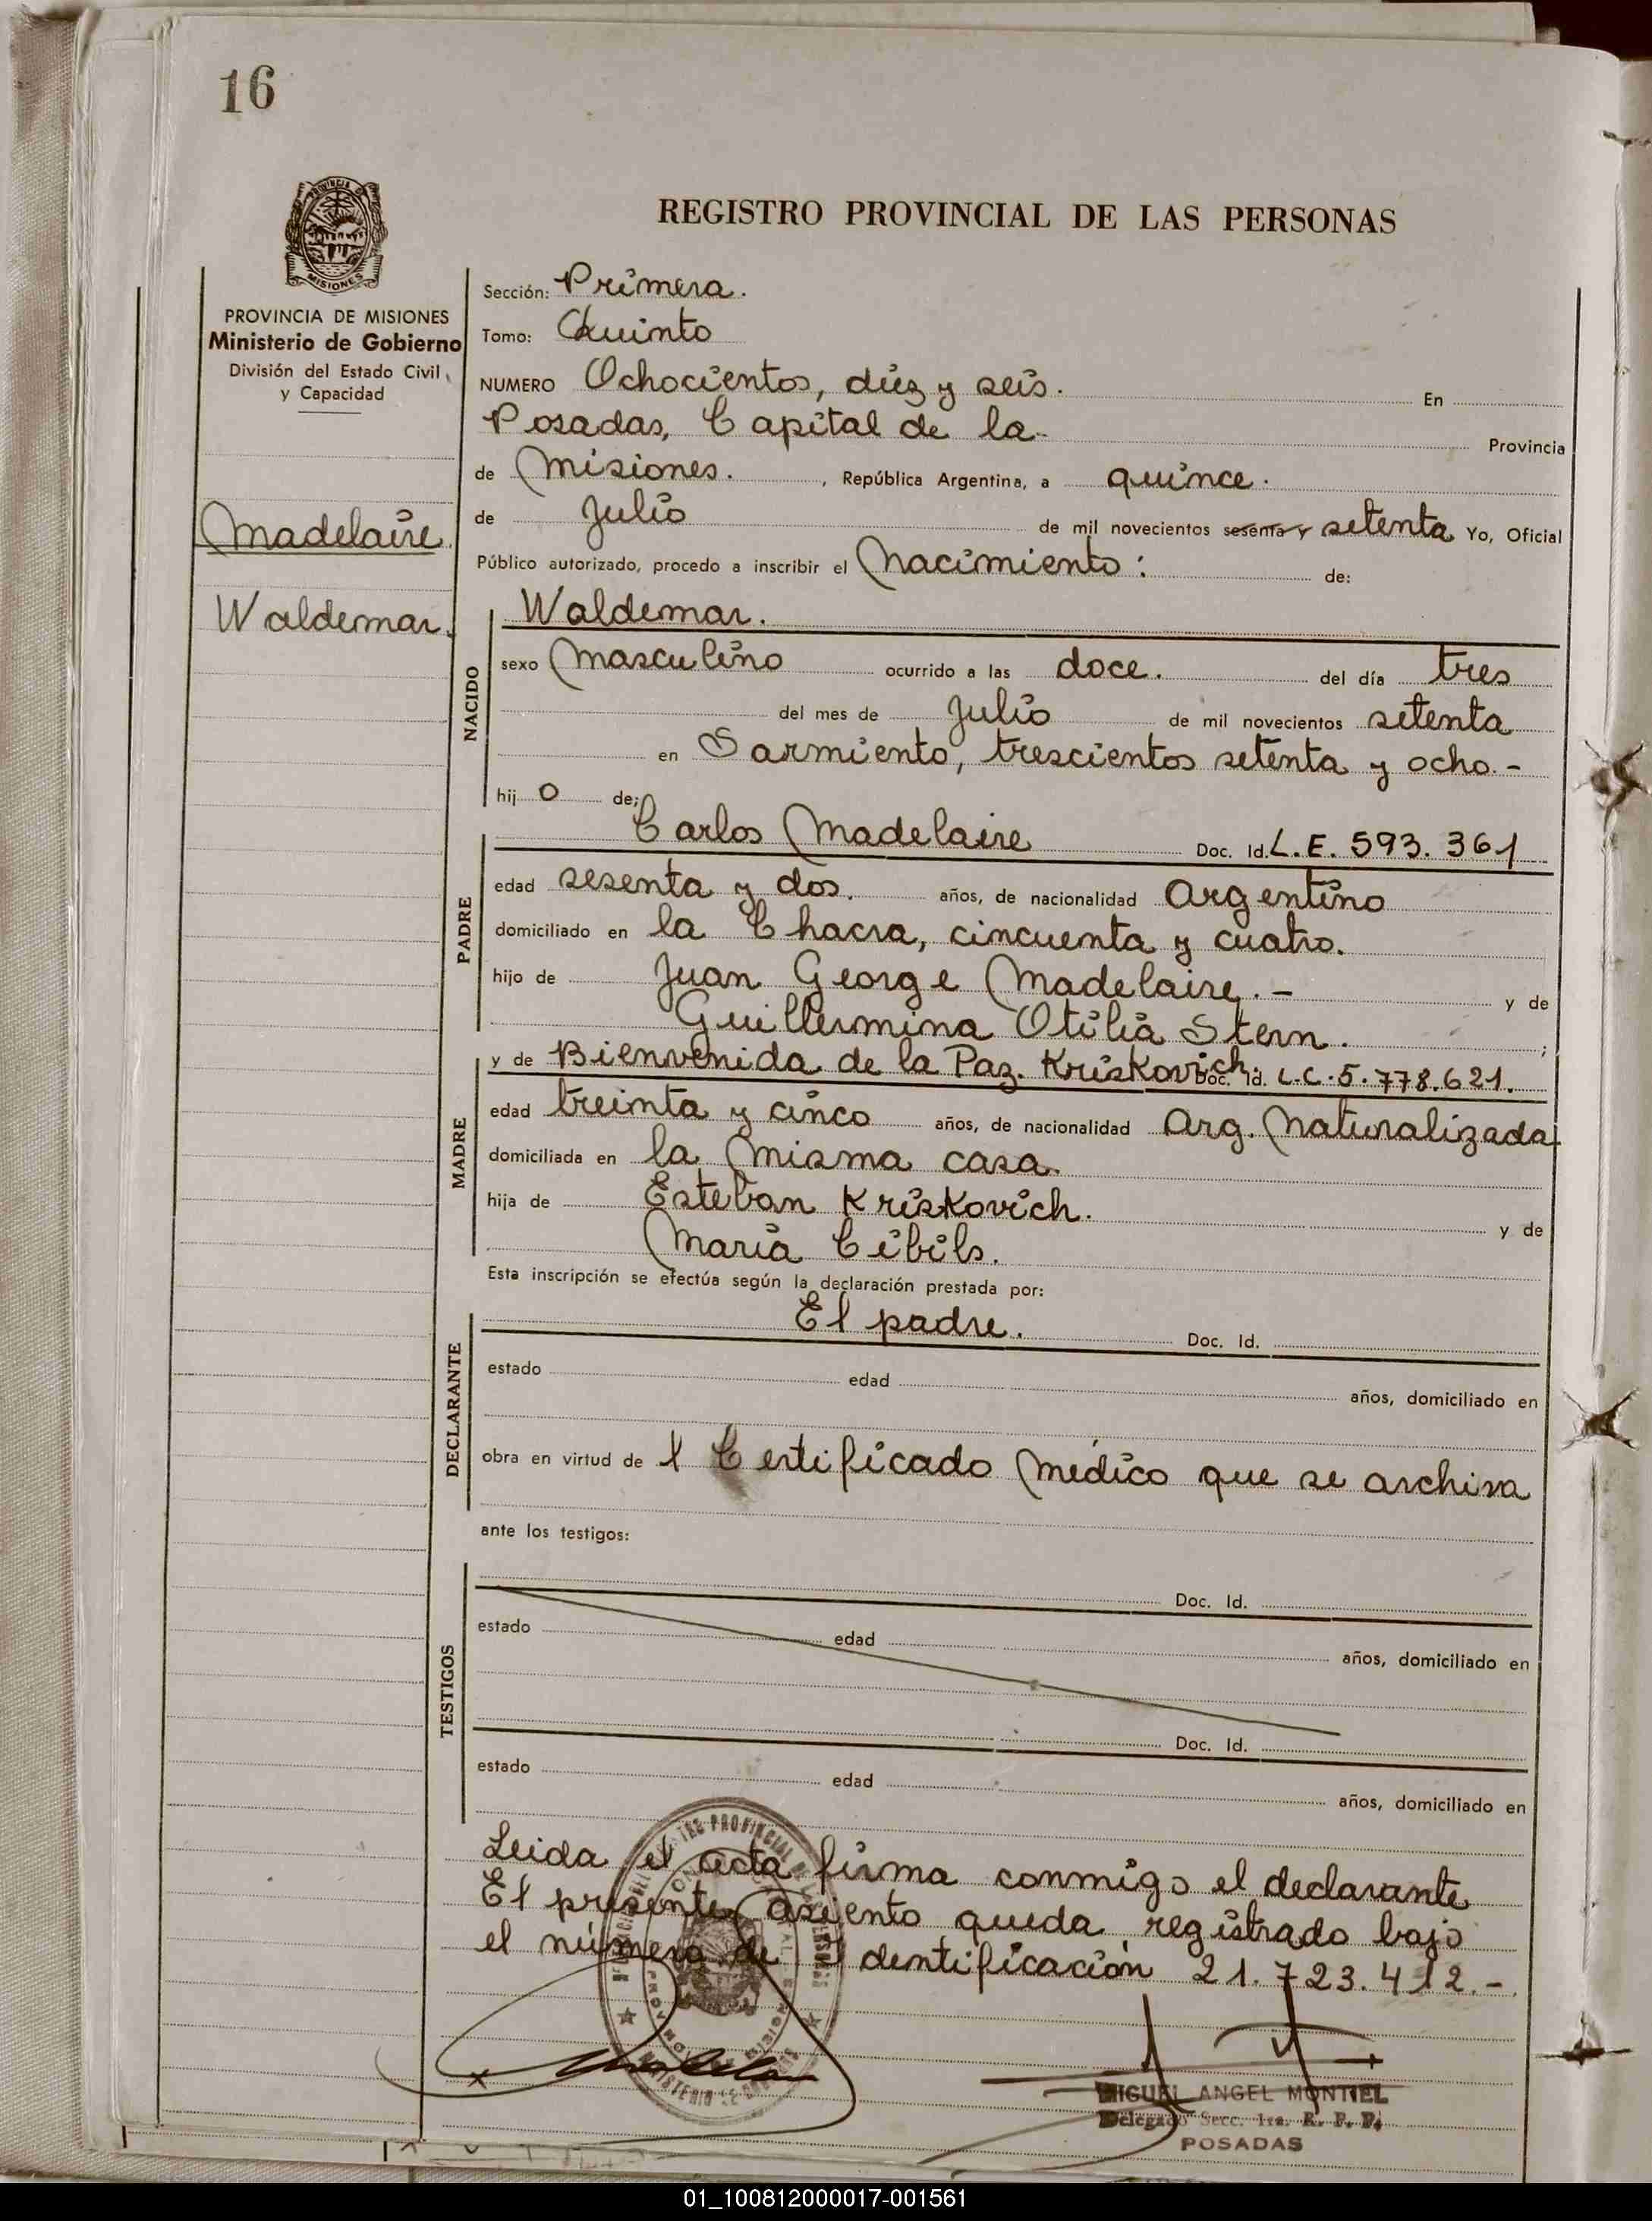 16
REGISTRO PROVINCIAL DE LAS PERSONAS
PROVINCIA DE MISIONES
Ministerio de Gobierno
División del Estado Civil
y Capacidad
MISIONES
Madelaire
Waldemar.
Sección: Primera.
Tomo: Quinto
NUMERO Ochocientos, diez y seis. En
Posadas, Capital de la Provincia
de Misiones. , República Argentina, a quince.
de Julio de mil novecientos sesenta y setenta Yo, Oficial
Público autorizado, procedo a inscribir el Nacimiento: de:
NACIDO
Waldemar.
sexo Masculino ocurrido a las doce. del día tres
del mes de Julio de mil novecientos setenta
en Sarmiento, trescientos setenta y ocho.-
hij o de;
PADRE
Carlos Madelaire Doc. Id. L.E. 593.361
edad sesenta y dos. años, de nacionalidad Argentino
domiciliado en la Chacra, cincuenta y cuatro.
hijo de Juan George Madelaire.- y de
Guillermina Otilia Stern. ;
MADRE
y de Bienvenida de la Paz. Kriskovich. Doc. Id. L.C.5.778.621.
edad treinta y cinco años, de nacionalidad Arg. Naturalizada
domiciliada en la misma casa.
hija de Esteban Kriskovich. y de
María Cibils.
Esta inscripción se efectúa según la declaración prestada por:
DECLARANTE
El padre. Doc. Id.
estado edad años, domiciliado en
obra en virtud de l Certificado Médico que se archiva
ante los testigos:
TESTIGOS
Doc. Id.
estado edad años, domiciliado en
Doc. Id.
estado edad años, domiciliado en
Leida el acta firma conmigo el declarante
El presente asiento queda registrado bajo
el número de Identificación 21.723.412.-
MIGUEL ANGEL MONTIEL
Delegado Secc. 1ra. R. P. P.
POSADAS
01_100812000017-001561